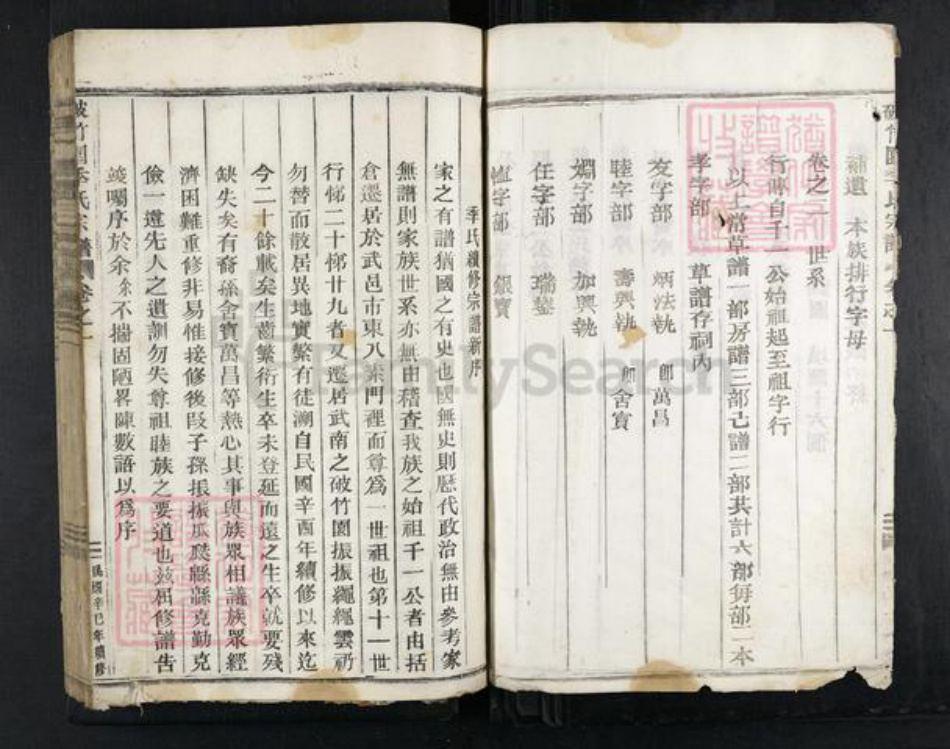 補遺　本族排行字母
卷之二　世系
行傳自千一公始祖起至祖字行
以上常草譜一部房譜三部己譜二部共計六部每部二本
孝字部　草譜存祠內
友字部　炳法執　即萬昌
睦字部　壽興執　即舍寶
婣字部　加興執
任字部　瑞鋆
恤字部　銀寶
季氏續修宗譜新序
家之有譜猶國之有史也國無史則歷代政治無由參考家
無譜則家族世系亦無由稽查我族之始祖千一公者由括
倉遷居於武邑市東八素門裡而尊爲一世祖也第十一世
行悌二十悌廿九者又遷居武南之破竹園振振繩繩雲礽
勿替而散居異地實繁有徒溯自民國辛酉年續修以來迄
今二十餘載矣生齒繁衍生卒未登延而遠之生卒就要殘
缺失矣有裔孫舍寶萬昌等熱心其事與族眾相議族眾經
濟困難重修非易惟接修後段子孫振振瓜瓞緜緜克勤克
儉一遵先人之遺訓勿失尊祖睦族之要道也茲屆修譜告
竣囑序於余余不揣固陋畧陳數語以爲序
民國辛巳年續修
破竹園季氏宗譜　卷之一
FamilySearch